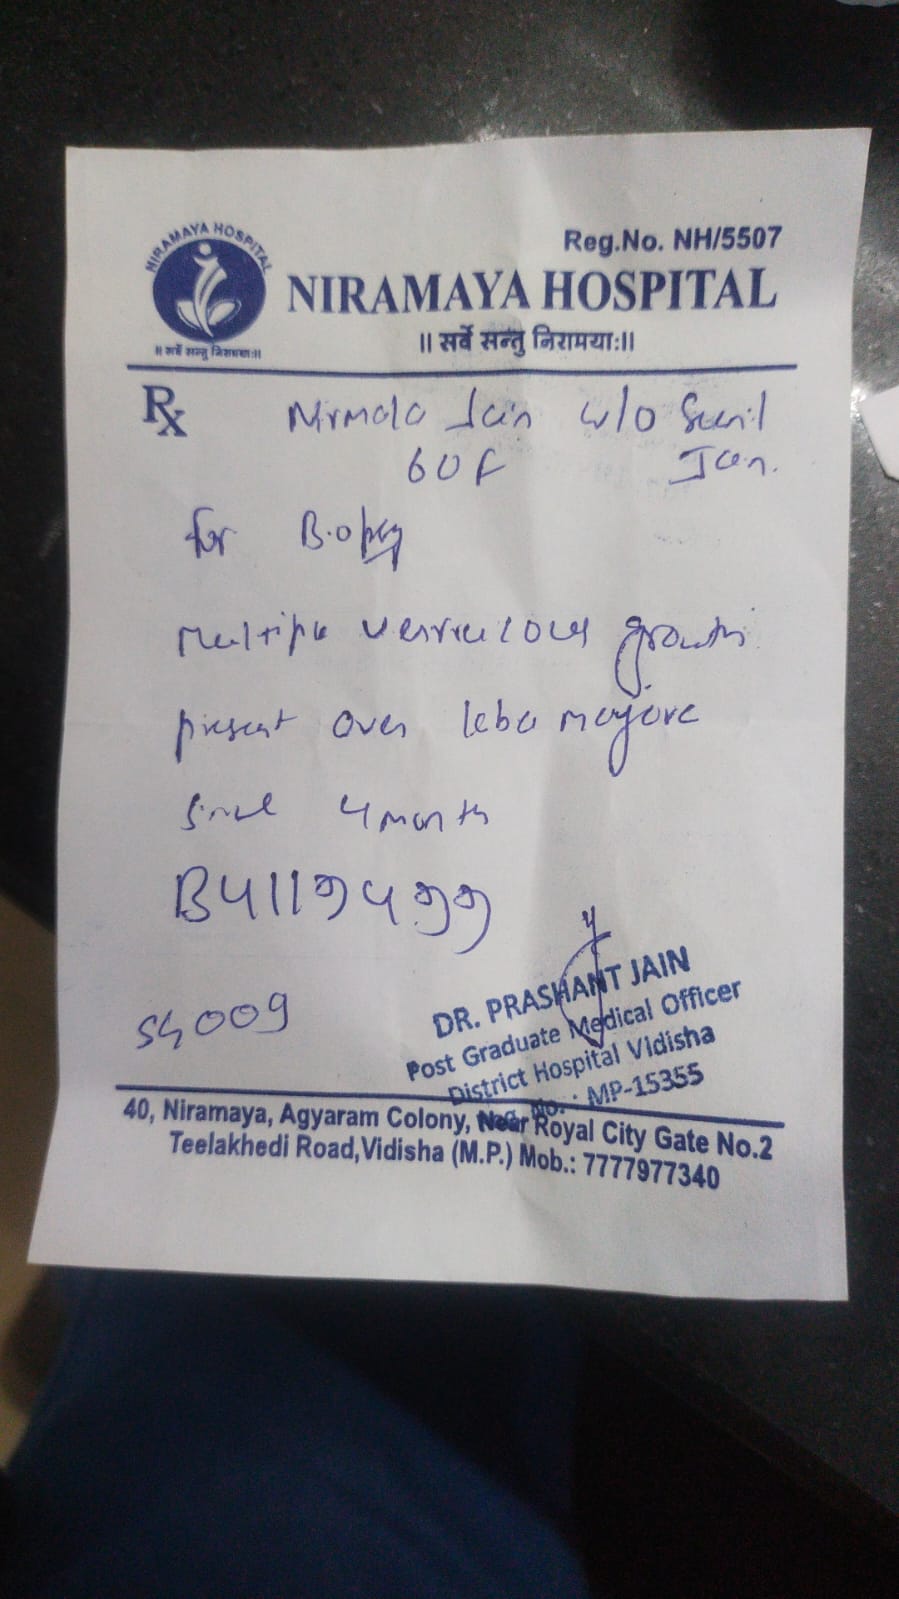 NIRAMAYA HOSPITAL
|| सर्वे सन्तु निरामयाः||
Reg.No. NH/5507
NIRAMAYA HOSPITAL
|| सर्वे सन्तु निरामयाः||
Rx Nirmala Jain w/o Sunil
60 F Jain.
for Biopsy
Multiple verrucous growth
present over leba majora
since 4 month
B4119499
S4009
DR. PRASHANT JAIN
Post Graduate Medical Officer
District Hospital Vidisha
Reg. No. : MP-15355
40, Niramaya, Agyaram Colony, Near Royal City Gate No.2
Teelakhedi Road,Vidisha (M.P.) Mob.: 7777977340